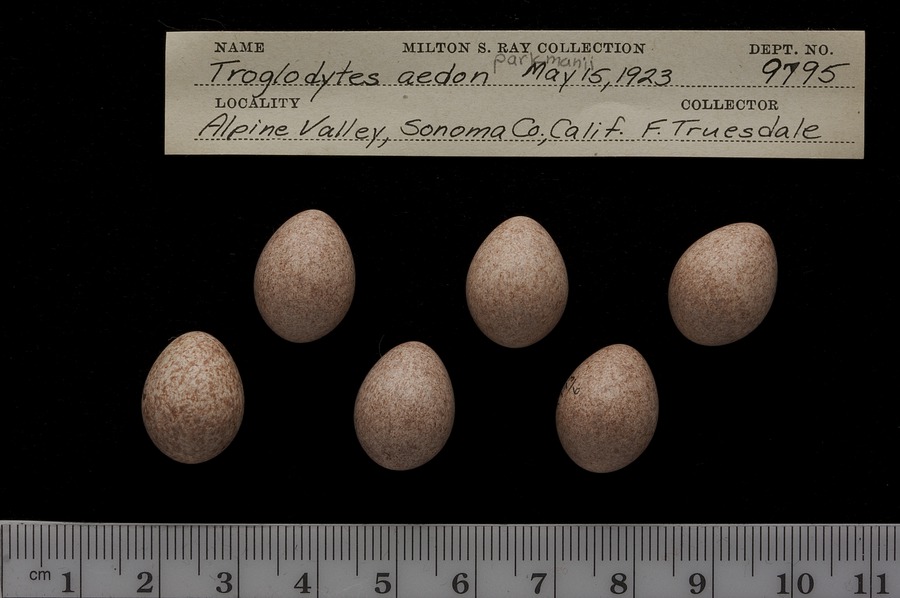 NAME MILTON S. RAY COLLECTION DEPT. NO.
parkmanii
Troglodytes aedon May 15, 1923 9795
LOCALITY COLLECTOR
Alpine Valley, Sonoma Co., Calif. F. Truesdale
cm 1 2 3 4 5 6 7 8 9 10 11